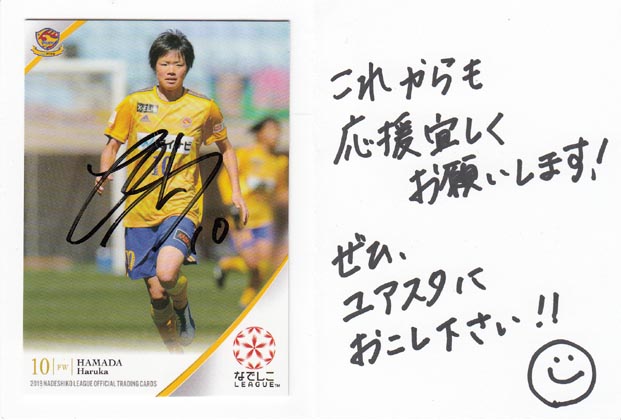 10 FW HAMADA
Haruka
2019 NADESHIKO LEAGUE OFFICIAL TRADING CARDS
なでしこ
LEAGUE™
10
これからも
応援宜しく
お願いします!
ぜひ、
ユアスタに
おこし下さい!!